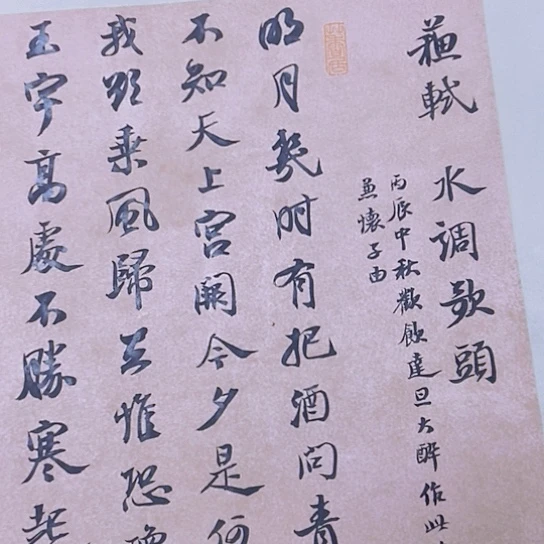 蘇軾 水調歌頭
丙辰中秋歡飲達旦大醉作此
兼懷子由
明月幾時有把酒問青
不知天上宮闕今夕是何
我欲乘風歸去惟恐
玉宇高處不勝寒起